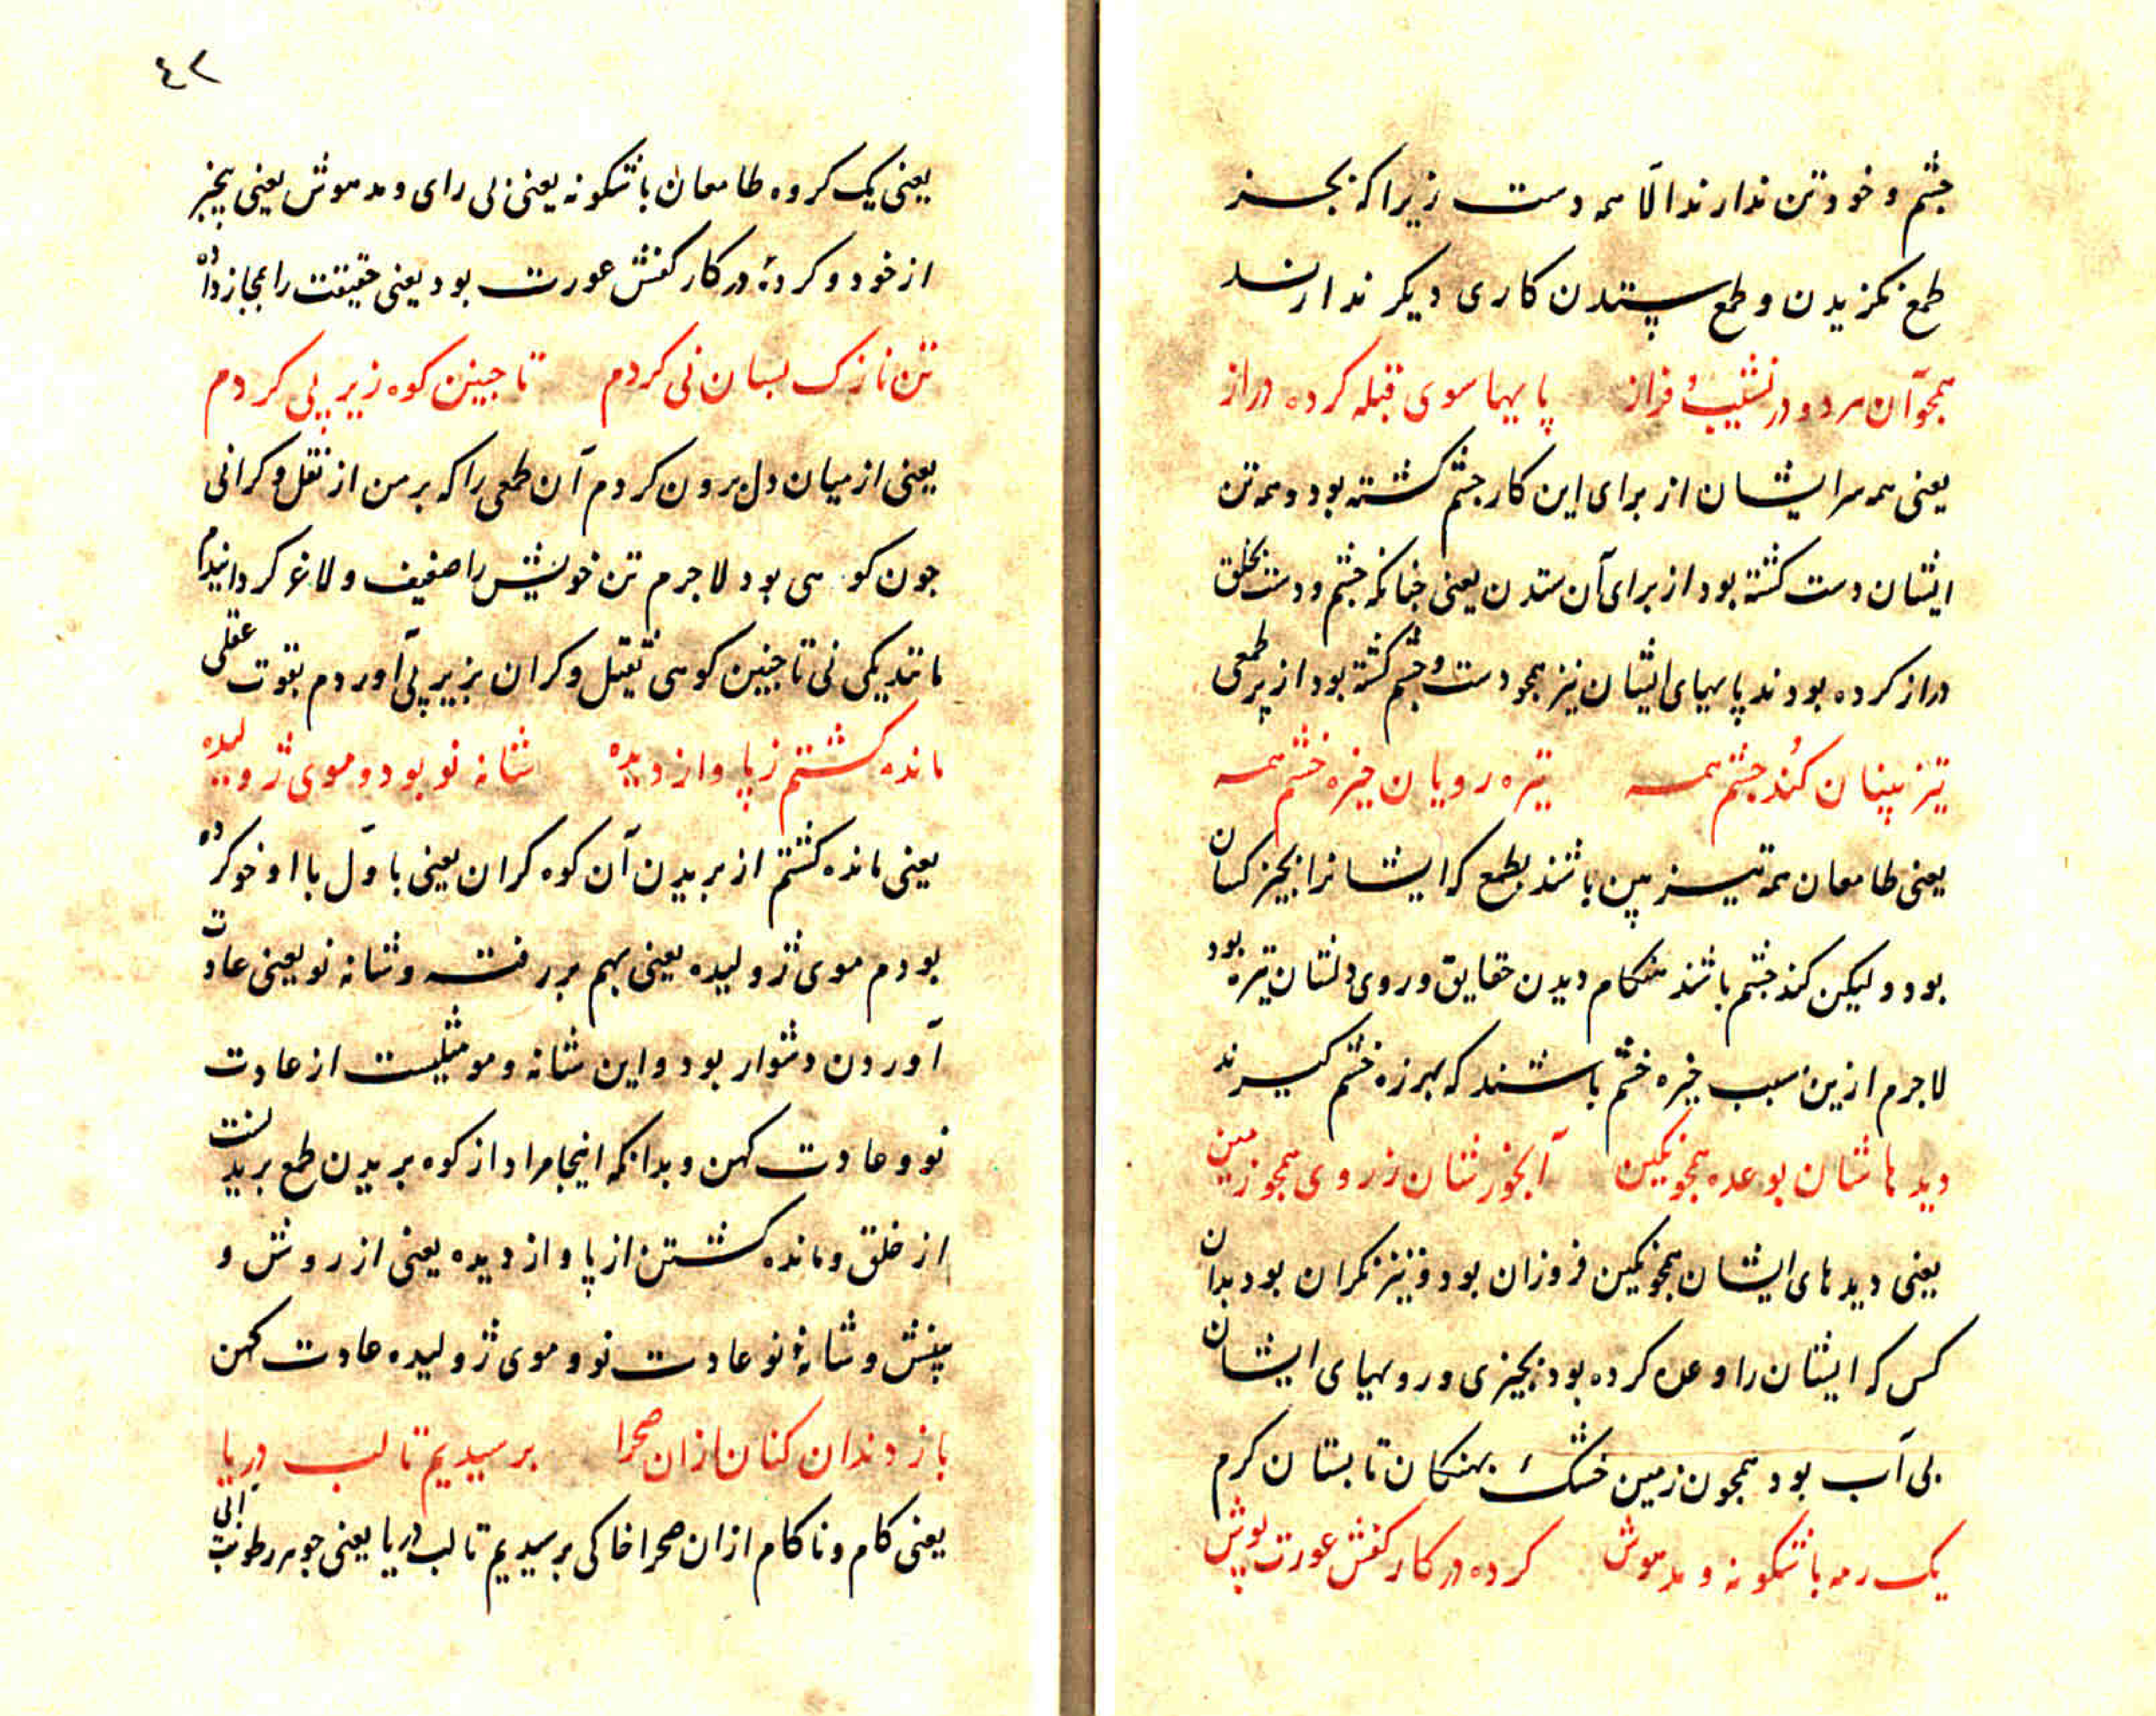 چشم و خود تن ندارند الّا همه دست زیرا که بجز
طمع نکزیدن و طمع پستدن کاری دیکر ندارند
همچو آن مردو در نشیب و فراز پایها سوی قبله کرده دراز
یعنی همه سر ایشان از برای این کار چشم کشته بود و همه تن
ایشان دست کشته بود از برای آن ستدن یعنی جنانکه چشم و دست بخلق
دراز کرده بودند پایهای ایشان نیز همچو دست و چشم کشته بود از پر طمعی
تیز بینان کُند جشم همه تیره رویان خیره خشم همه
یعنی طامعان همه تیز بین باشند بطمع که ایشانرا بچیز کسان
بود ولیکن کند جشم باشند هنکام دیدن حقایق و روی دلشان تیره بود
لاجرم ازین سبب خیره خشم باشند که بهرزه خشم کیرند
دیدهاشان بوعده همچو نکین آبخورشان ز روی همچو زمین
یعنی دیدهای ایشان همچو نکین فروزان بود و نیز نکران بود بدان
کس که ایشان را وعده کرده بود بچیزی و رویهای ایشان
بی آب بود همچون زمین خشک بهنکان تابستان کرم
یک رمه باشکونه و مدهوش کرده در کار کفش عورت پوش
٤٢
یعنی یک کروه طامعان باشکونه یعنی بی رای و مدهوش یعنی بیخبر
از خود و کردهٔ در کار کفش عورت بود یعنی حقیقت را بمجاز داده
تن نازک بسان نی کردم تا جنین کوه زیر پی کردم
یعنی از میان دل برون کردم آن طمعی را که بر من از ثقل و کرانی
جون کوهی بود لاجرم تن خویش را ضعیف و لاغر کردانیدم
مانند یکی نی تا جنین کوهی ثقیل و کران بزیر پی آوردم بقوت عقلی
مانده کشتم ز پا و از دیده شانه نو بود و موی ژولیده
یعنی مانده کشتم از بریدن آن کوه کران یعنی باوّل با او خو کرده
بودم موی ژولیده یعنی بهم بر رفته و شانه نو یعنی عادت
آوردن دشوار بود و این شانه و مو مثلیست از عادت
نو و عادت کهن و بدانکه اینجا مراد از کوه بریدن طمع بریدنست
از خلق و مانده کشتن از پا و از دیده یعنی از روش و
بینش و شانهٔ نو عادت نو و موی ژولیده عادت کهن
باز دندان کنان ازان صحرا برسیدیم تا لب دریا
یعنی کام و ناکام ازان صحرا خاکی برسیدیم تا لب دریا یعنی جوهر رطوبت آبی